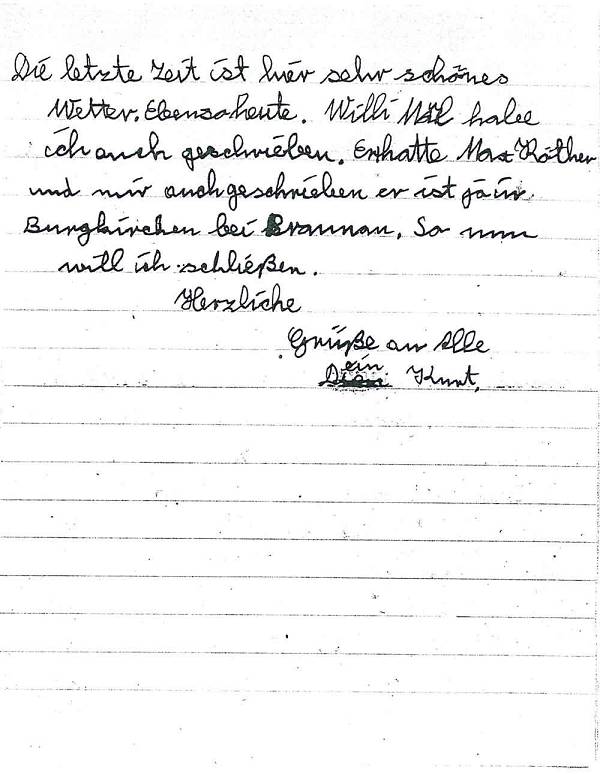 Die letzte Zeit ist hier sehr schönes
Wetter. Ebenso heute. Willi habe
ich auch geschrieben. Er hatte Max Röther
und mir auch geschrieben er ist ja in
Burgkirchen bei Braunau. So nun
will ich schließen.
Herzliche
Grüße an Alle
Dein Kurt.